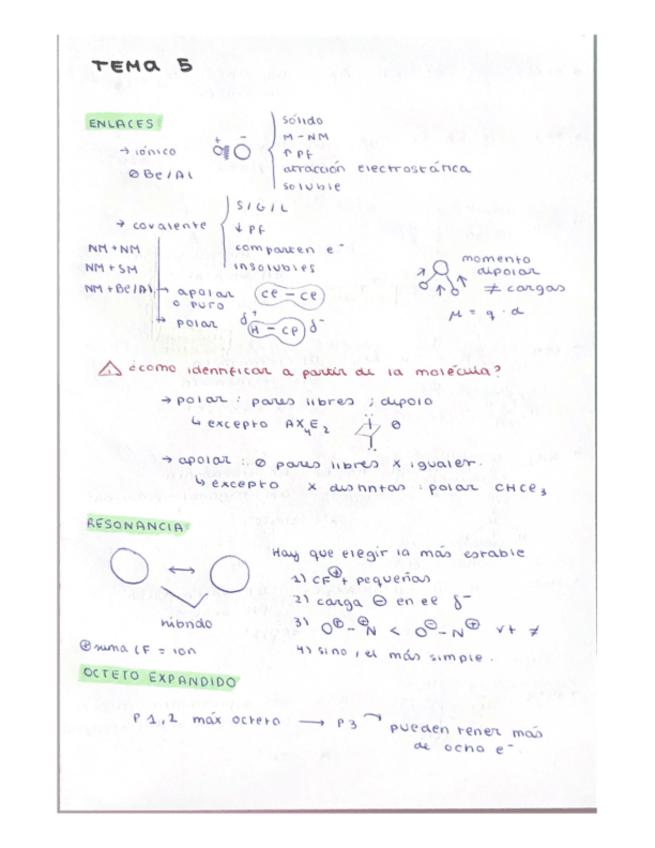 TEMA 5
ENLACES
→ iónico
∅ Be/Al
+ -
sólido
M - NM
↑ PF
atracción electrostática
soluble
→ covalente
S/G/L
↓ PF
comparten e⁻
insolubles
NM + NM
NM + SM
NM + Be/Al
→ apolar
o puro
ce - ce
→ polar
δ⁺ H - ce δ⁻
momento
dipolar
≠ cargas
μ = q · d
¿cómo identificar a partir de la molécula?
→ polar : pares libres ; dipolo
↳ excepto AX₄E₂
→ apolar : ∅ pares libres X iguales.
↳ excepto X distintas : polar CHCe₃
RESONANCIA
↔
híbrido
⊕ suma CF = ion
Hay que elegir la más estable
1) CF⊕ + pequeñas
2) carga ⊖ en el δ⁻
3) O⊕ - ⊖N < O⊖ - N⊕ v+ ≠
4) sino, el más simple.
OCTETO EXPANDIDO
P 1,2 máx octeto → P3 → pueden tener más
de ocho e⁻.